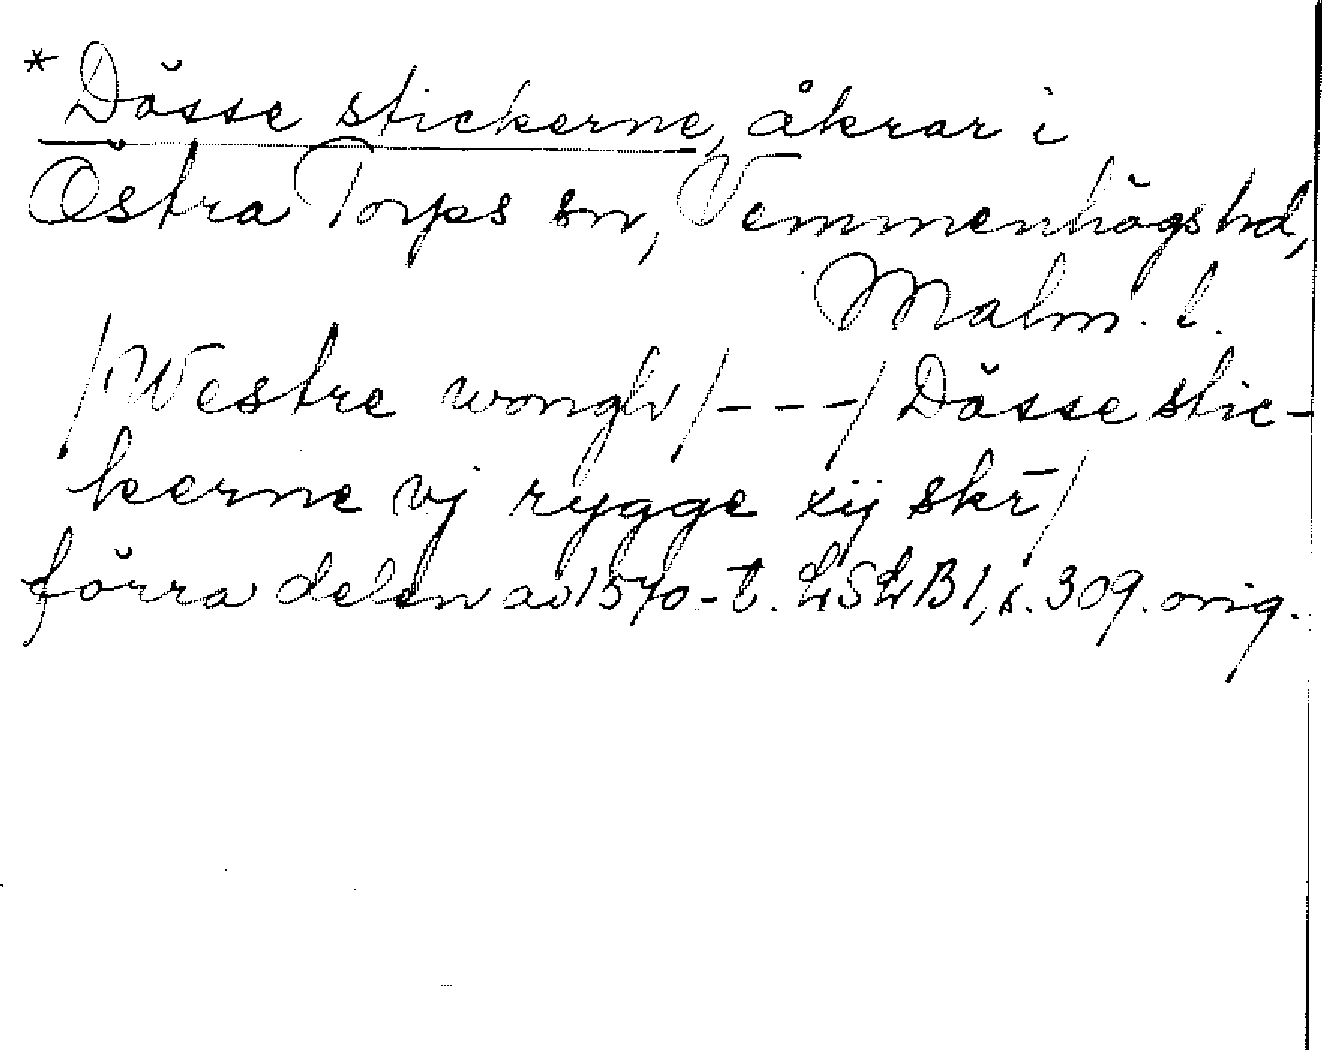 * Dösse stickerne, åkrar i
Östra Torps sn, Vemmenhögs hd,
Malm. l.
/Westre wongh/---/Dösse stic-
kerne vj rygge xij skr̄/
förra delen av 1570-t. LSLB1, s. 309. orig.